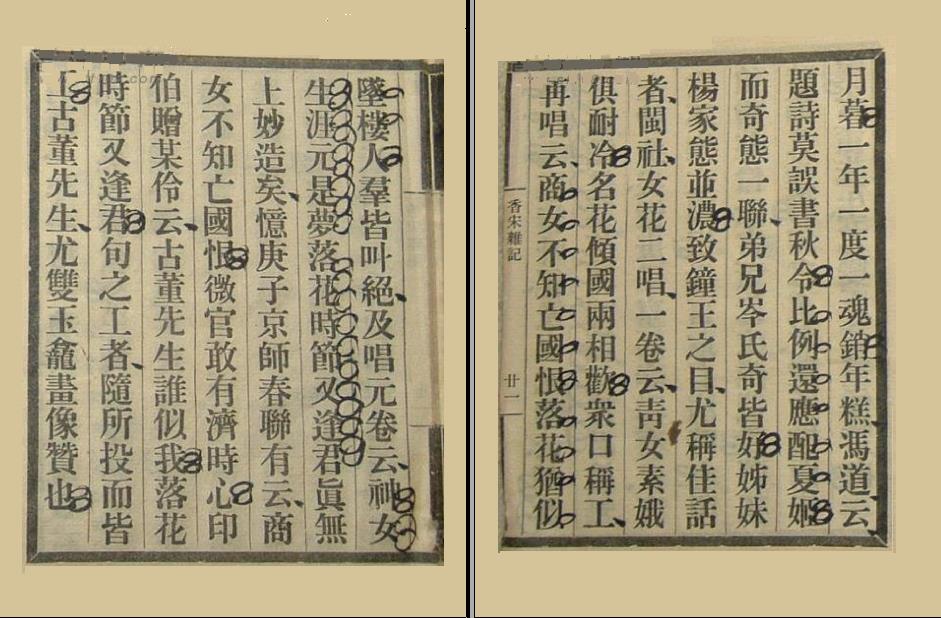 月暮一年一度一魂銷年糕、馮道云、
題詩莫誤書秋令比例還應配夏姬
而奇態一聯、弟兄岑氏奇皆好姊妹
楊家態並濃致鐘王之目、尤稱佳話
者、閩社、女花二唱、一卷云、靑女素娥
俱耐冷名花傾國兩相歡衆口稱工、
再唱云、商女不知亡國恨落花猶似
香宋雜記
廿一
墜樓人羣皆叫絕、及唱元卷云、神女
生涯元是夢落花時節又逢君眞無
上妙造矣、憶庚子京師春聯有云、商
女不知亡國恨微官敢有濟時心印
伯贈某伶云、古董先生誰似我落花
時節又逢君句之工者、隨所投而皆
工古董先生、尤雙玉龕畫像贊也